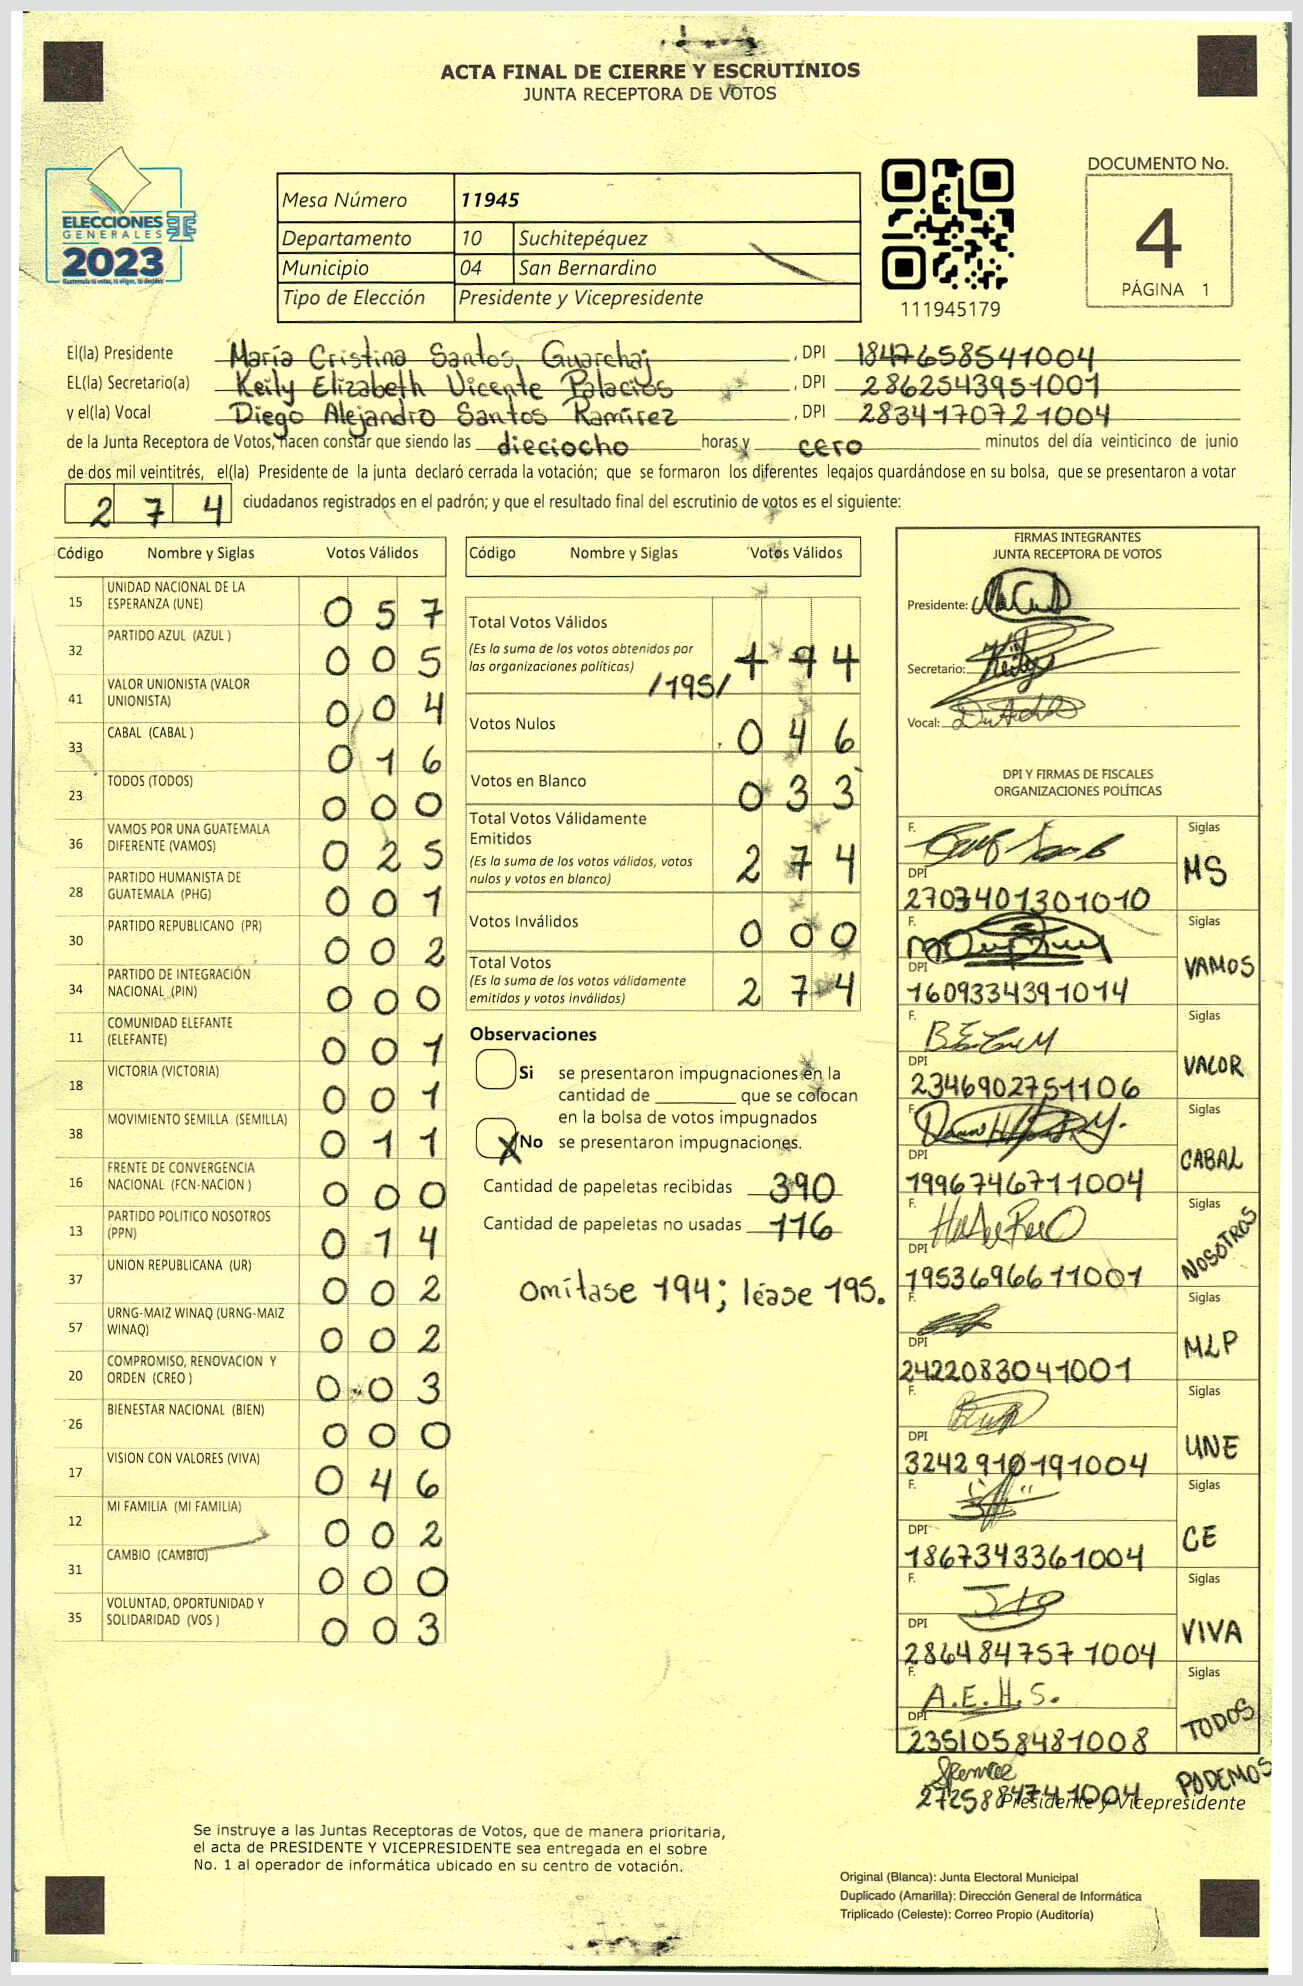 ACTA FINAL DE CIERRE Y ESCRUTINIOS
JUNTA RECEPTORA DE VOTOS
ELECCIONES
GENERALES
2023
Mesa Número 11945
Departamento 10 Suchitepéquez
Municipio 04 San Bernardino
Tipo de Elección Presidente y Vicepresidente
111945179
DOCUMENTO No.
4
PÁGINA 1
El(la) Presidente María Cristina Santos Guarchaj, DPI 1847658541004
EL(la) Secretario(a) Keily Elizabeth Vicente Palacios, DPI 2862543951001
y el(la) Vocal Diego Alejandro Santos Ramírez, DPI 2834170721004
de la Junta Receptora de Votos, hacen constar que siendo las dieciocho horas y cero minutos del día veinticinco de junio
de dos mil veintitrés, el(la) Presidente de la junta declaró cerrada la votación; que se formaron los diferentes legajos guardándose en su bolsa, que se presentaron a votar
274 ciudadanos registrados en el padrón; y que el resultado final del escrutinio de votos es el siguiente:
Código Nombre y Siglas Votos Válidos
15 UNIDAD NACIONAL DE LA ESPERANZA (UNE) 057
32 PARTIDO AZUL (AZUL ) 005
41 VALOR UNIONISTA (VALOR UNIONISTA) 004
33 CABAL (CABAL ) 016
23 TODOS (TODOS) 000
36 VAMOS POR UNA GUATEMALA DIFERENTE (VAMOS) 025
28 PARTIDO HUMANISTA DE GUATEMALA (PHG) 001
30 PARTIDO REPUBLICANO (PR) 002
34 PARTIDO DE INTEGRACIÓN NACIONAL (PIN) 000
11 COMUNIDAD ELEFANTE (ELEFANTE) 001
18 VICTORIA (VICTORIA) 001
38 MOVIMIENTO SEMILLA (SEMILLA) 011
16 FRENTE DE CONVERGENCIA NACIONAL (FCN-NACION ) 000
13 PARTIDO POLITICO NOSOTROS (PPN) 014
37 UNION REPUBLICANA (UR) 002
57 URNG-MAIZ WINAQ (URNG-MAIZ WINAQ) 002
20 COMPROMISO, RENOVACION Y ORDEN (CREO ) 003
26 BIENESTAR NACIONAL (BIEN) 000
17 VISION CON VALORES (VIVA) 046
12 MI FAMILIA (MI FAMILIA) 002
31 CAMBIO (CAMBIO) 000
35 VOLUNTAD, OPORTUNIDAD Y SOLIDARIDAD (VOS ) 003
Código Nombre y Siglas Votos Válidos
Total Votos Válidos
(Es la suma de los votos obtenidos por
las organizaciones políticas) 194
/195/
Votos Nulos 046
Votos en Blanco 033
Total Votos Válidamente
Emitidos
(Es la suma de los votos válidos, votos
nulos y votos en blanco) 274
Votos Inválidos 000
Total Votos
(Es la suma de los votos válidamente
emitidos y votos inválidos) 274
Observaciones
Si se presentaron impugnaciones en la
cantidad de ________ que se colocan
en la bolsa de votos impugnados
X No se presentaron impugnaciones.
Cantidad de papeletas recibidas 390
Cantidad de papeletas no usadas 116
Omítase 194; léase 195.
FIRMAS INTEGRANTES
JUNTA RECEPTORA DE VOTOS
Presidente:
Secretario:
Vocal:
DPI Y FIRMAS DE FISCALES
ORGANIZACIONES POLÍTICAS
F. Siglas
DPI 2707401301010 MS
F. Siglas
DPI 1609334391014 VAMOS
F. Siglas
DPI 2346902751106 VALOR
F. Siglas
DPI 1996746711004 CABAL
F. Siglas
DPI 1953696611001 NOSOTROS
F. Siglas
DPI 2422083041001 MLP
F. Siglas
DPI 3242910191004 UNE
F. Siglas
DPI 1867343361004 CE
F. Siglas
DPI 2864847571004 VIVA
F. A.E.H.S. Siglas
DPI 2351058481008 TODOS
PODEMOS
Presidente y Vicepresidente
Se instruye a las Juntas Receptoras de Votos, que de manera prioritaria,
el acta de PRESIDENTE Y VICEPRESIDENTE sea entregada en el sobre
No. 1 al operador de informática ubicado en su centro de votación.
Original (Blanca): Junta Electoral Municipal
Duplicado (Amarilla): Dirección General de Informática
Triplicado (Celeste): Correo Propio (Auditoría)